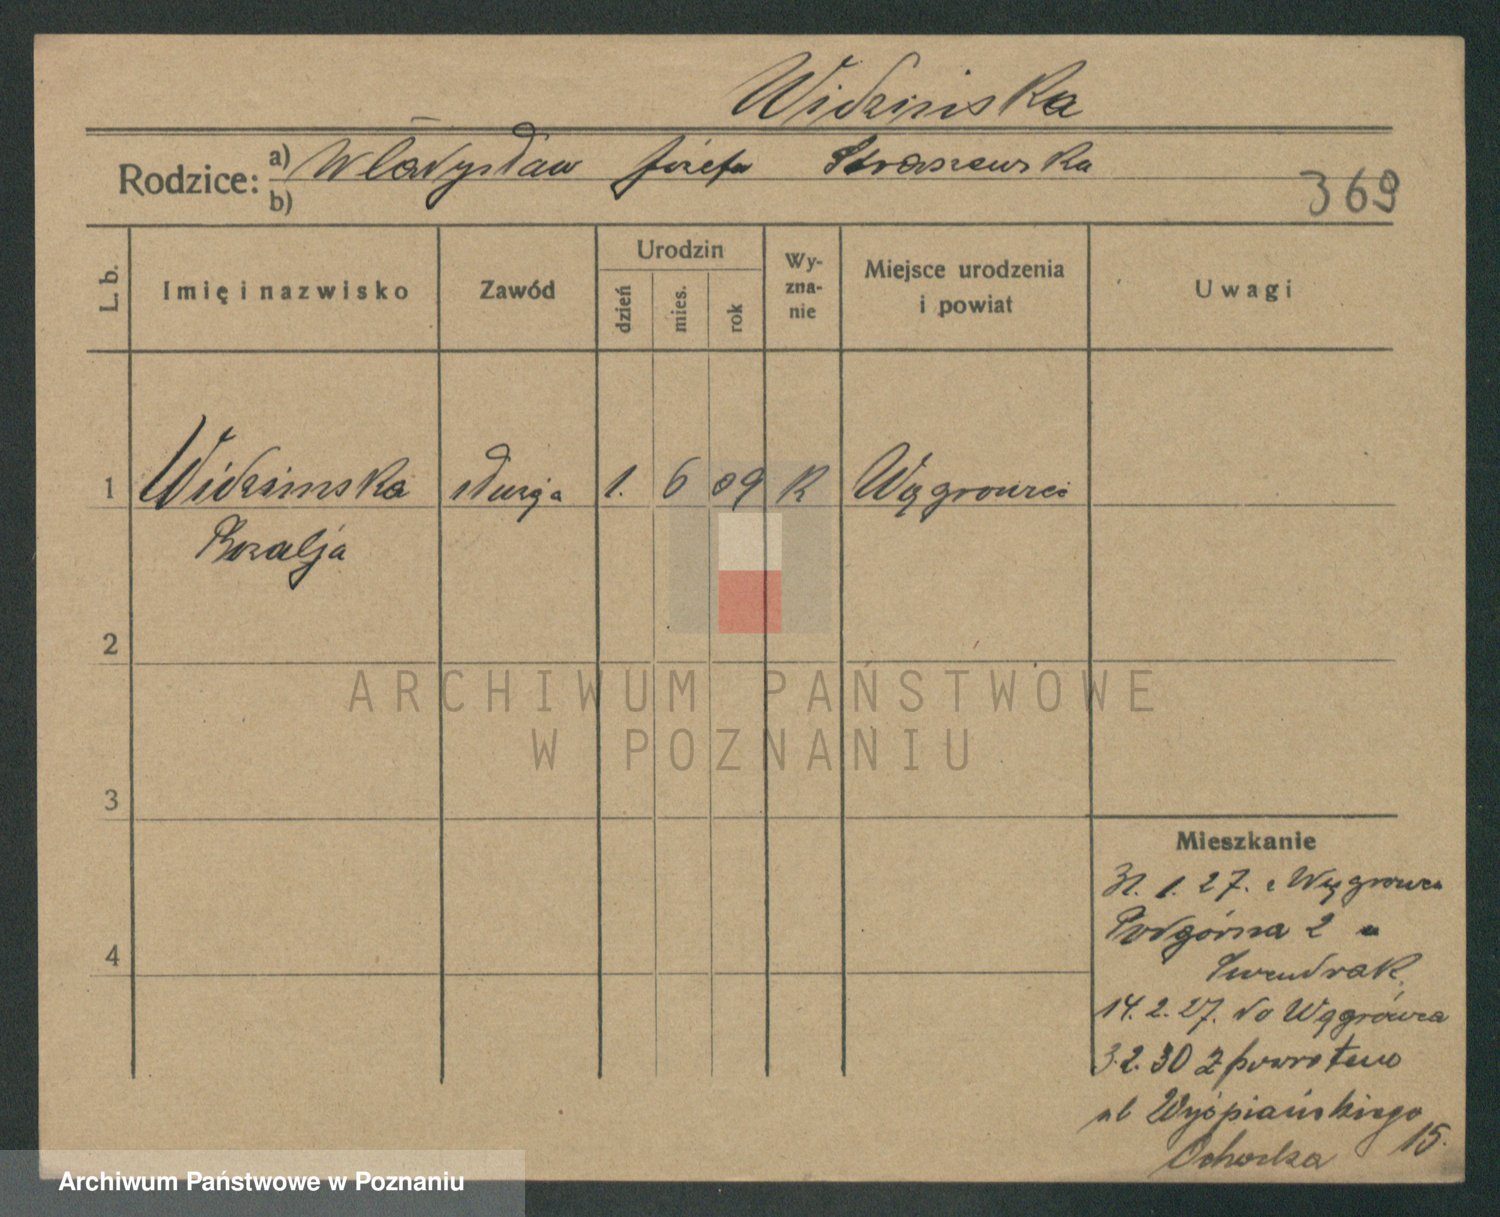 Widzinska
Rodzice: a) Władysław Józefa Straszewska
b)
369
L. b. Imię i nazwisko Zawód Urodzin dzień mies. rok Wy-zna-nie Miejsce urodzenia i powiat Uwagi
1 Widzinska służąca 1. 6 09 R Wągrowiec
Rozalja
2
ARCHIWUM PAŃSTWOWE
W POZNANIU
3
4
Mieszkanie
31. 1. 27. z Wągrowca
Podgórna 2 u
14. 2. 27. do Wągrówca
3. 2. 30 z powrotem
ul Wyspiańskiego
15.
Archiwum Państwowe w Poznaniu